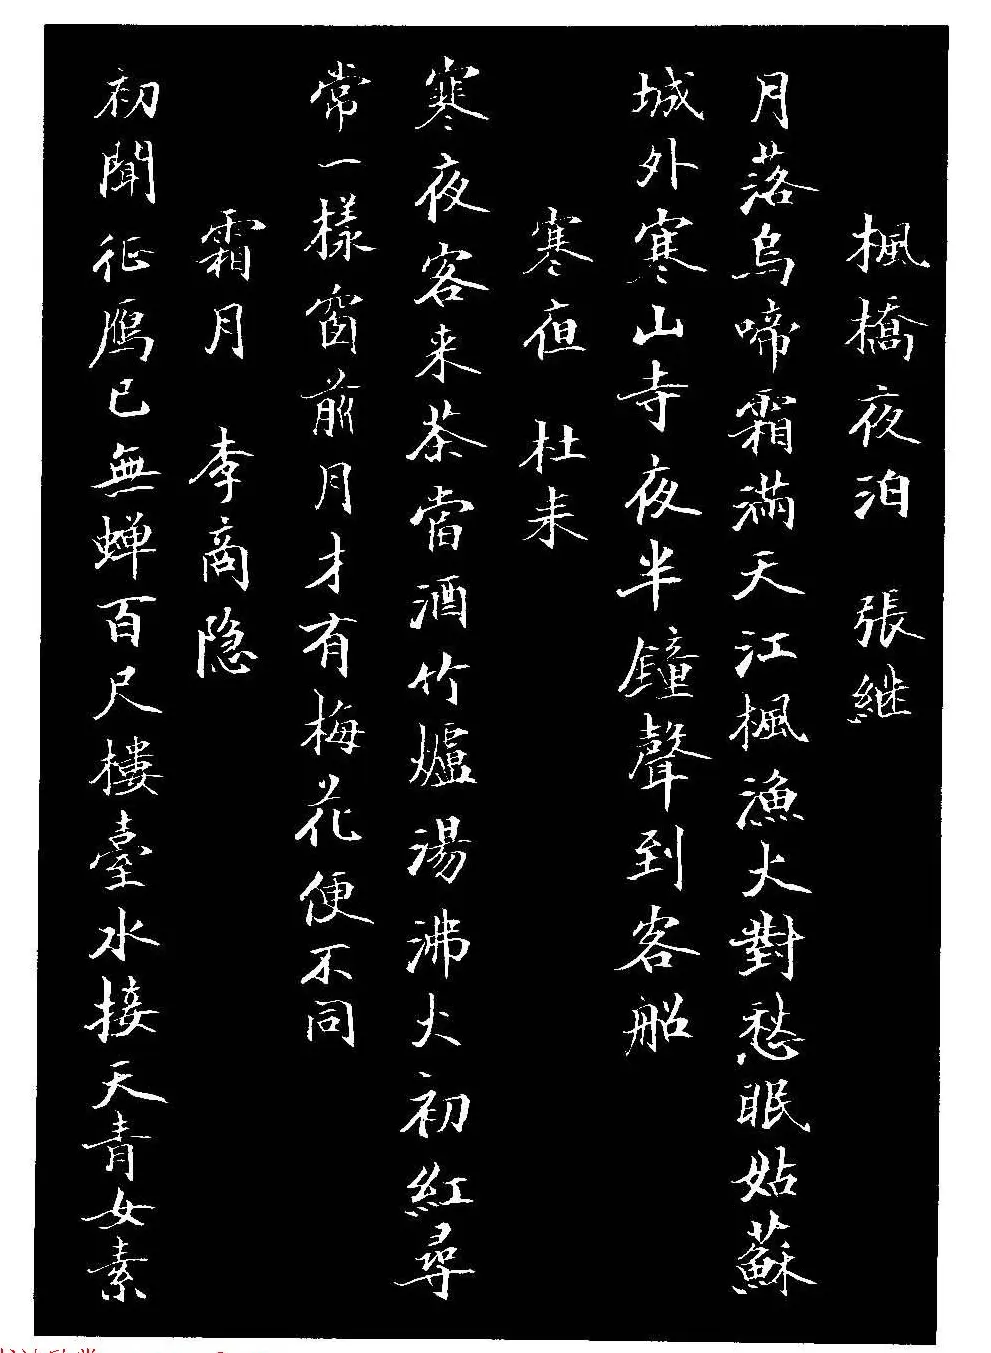 楓橋夜泊　張継
月落烏啼霜滿天江楓漁火對愁眠姑蘇
城外寒山寺夜半鐘聲到客船
寒夜　杜耒
寒夜客来茶當酒竹爐湯沸火初紅尋
常一樣窗前月才有梅花便不同
霜月　李商隐
初聞征鴈已無蝉百尺樓臺水接天青女素